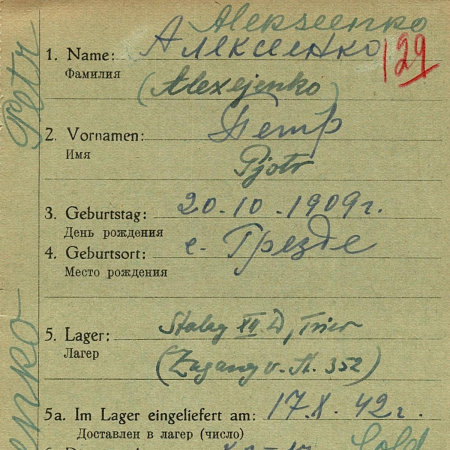 Alekseenko
1. Name: Алексеенко 129
Фамилия
(Alexejenko)
Petr
2. Vornamen: Петр
Имя
Pjotr
3. Geburtstag: 20.10.1909г.
День рождения
4. Geburtsort: с. Грезде
Место рождения
5. Lager: Stalag XII D, Trier
Лагер
(Zugang v. St. 352)
5a. Im Lager eingeliefert am: 17.X.42г.
Доставлен в лагер (число)
enko
Sold